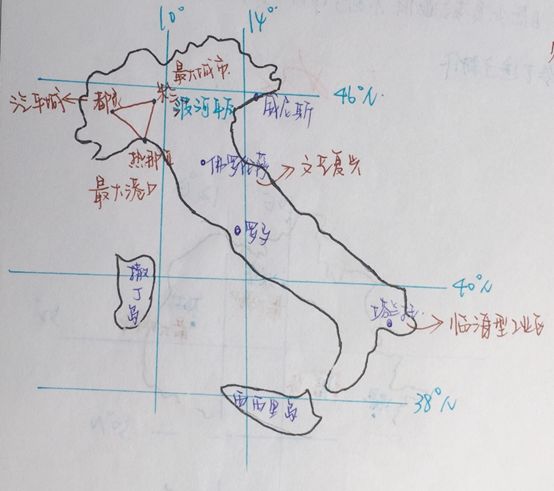 10°
14°
最大城市
46°N
汽车城
都灵
米兰
波河平原
威尼斯
热那亚
佛罗伦萨
文艺复兴
最大港口
罗马
撒丁岛
40°N
塔兰托
临海型工业区
西西里岛
38°N